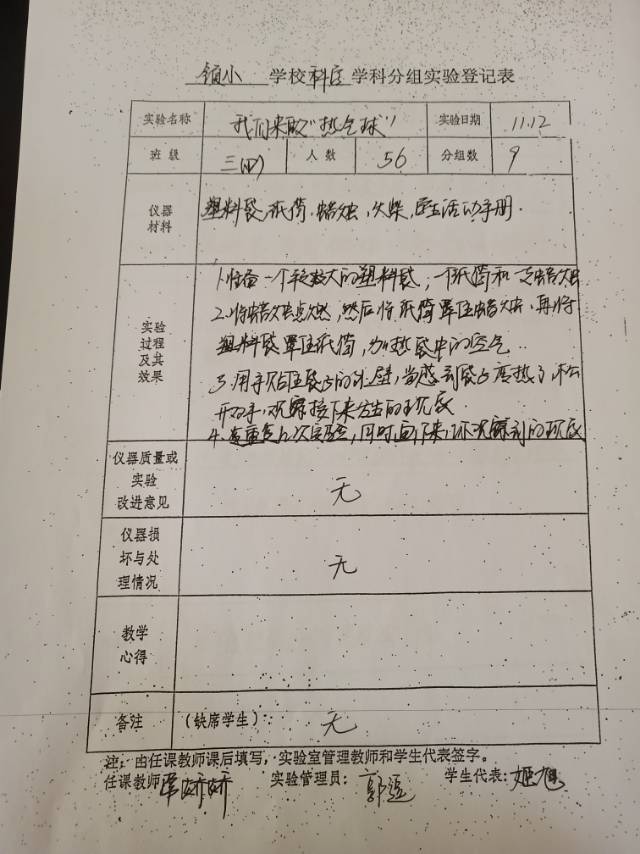 镇小 学校科学学科分组实验登记表
实验名称 我们来做"热气球" 实验日期 11.12
班级 三(四) 人数 56 分组数 9
仪器材料 塑料袋,纸筒,蜡烛,火柴,学生活动手册.
实验过程及其效果
1.准备一个较大的塑料袋,一个纸筒和一支蜡烛
2.将蜡烛点燃,然后将纸筒罩住蜡烛,再将
塑料袋罩住纸筒,加热袋中的空气.
3.用手贴住袋的外壁,当感到袋热了,松
开双手,观察接下来发生的现象
4.重复几次实验,同时画下来观察到的现象
仪器质量或实验改进意见 无
仪器损坏与处理情况 无
教学心得
备注 (缺席学生): 无
注:由任课教师课后填写,实验室管理教师和学生代表签字。
任课教师: 娇娇 实验管理员: 郭 学生代表: 姬旭